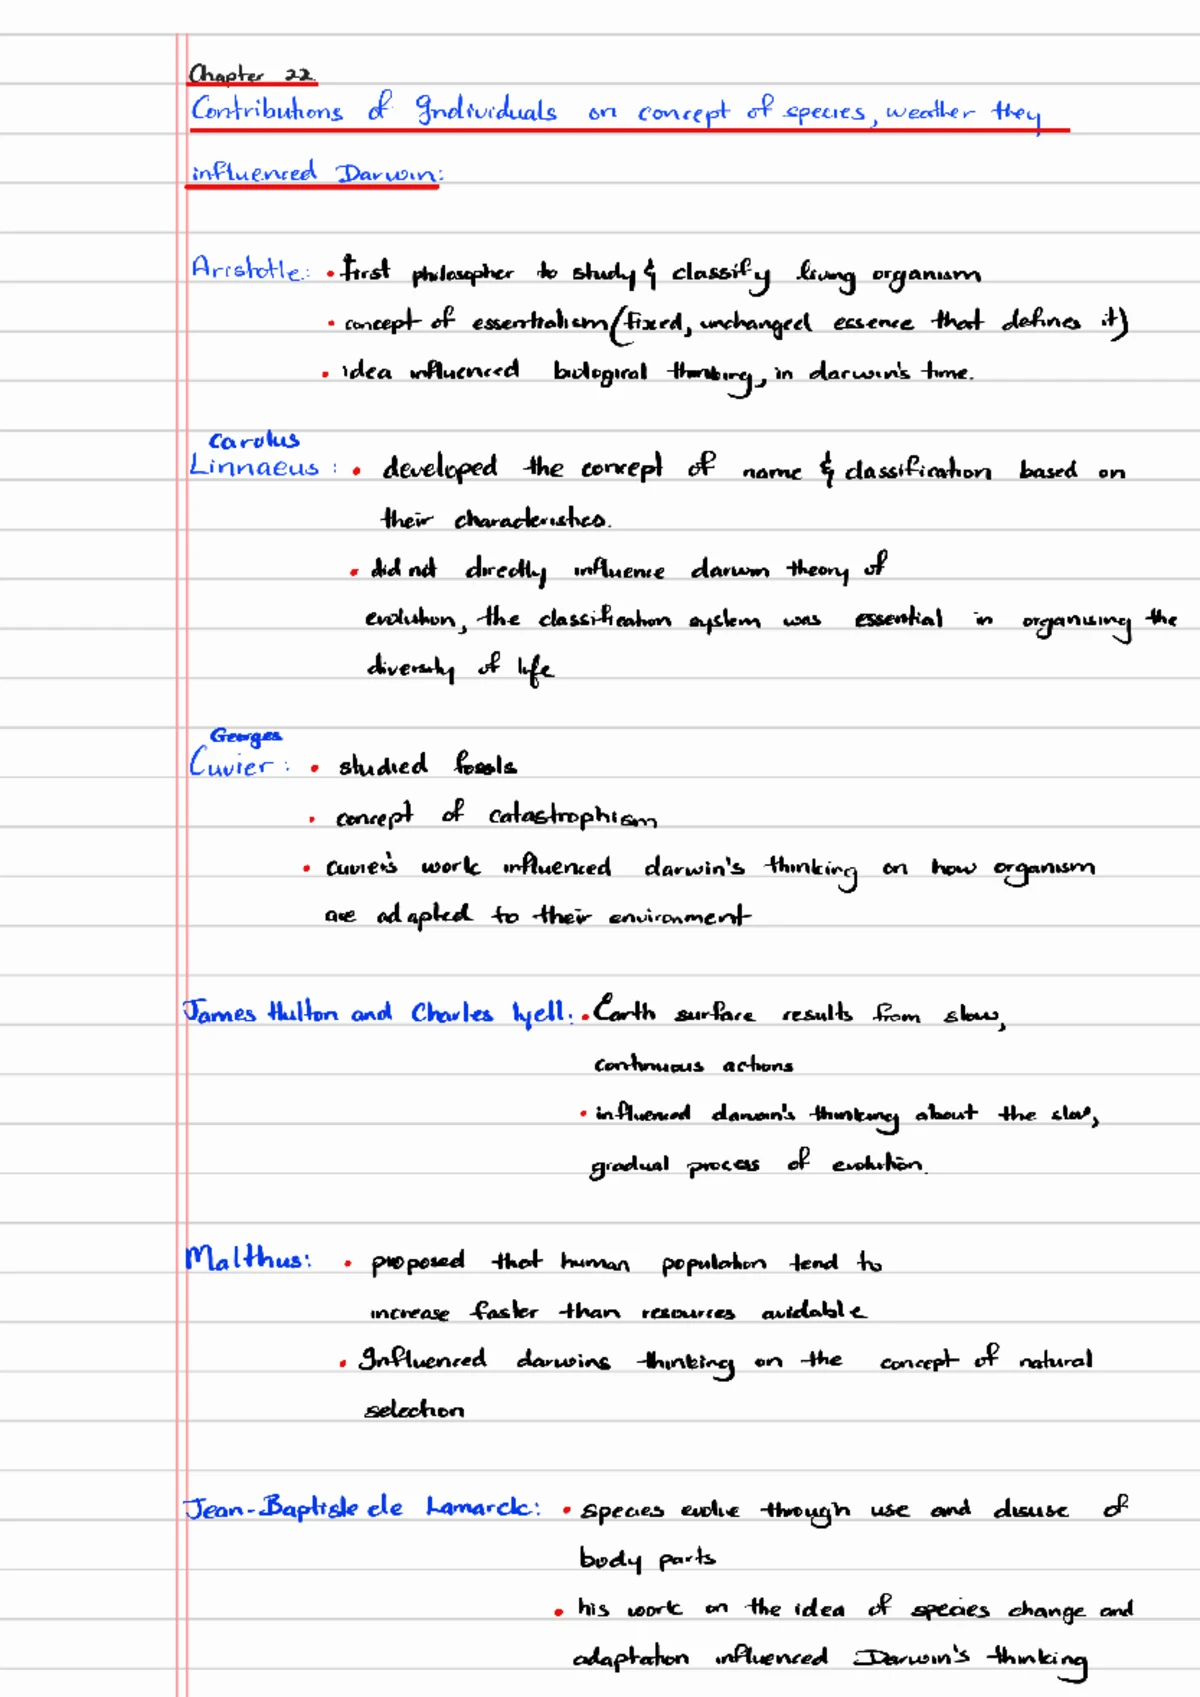 Chapter 22
Contributions of Individuals on concept of species, weather they
influenced Darwin:
Aristotle: • first philosopher to study & classify living organism
• concept of essentialism (fixed, unchanged essence that defines it)
• idea influenced biological thinking, in darwin's time.
Carolus
Linnaeus : • developed the concept of name & classification based on
their characteristics.
• did not directly influence darwin theory of
evolution, the classification system was essential in organising the
diversity of life
Georges
Cuvier : • studied fossils
• concept of catastrophism
• cuvier's work influenced darwin's thinking on how organism
are adapted to their environment
James Hutton and Charles lyell: • Earth surface results from slow,
continuous actions
• influenced darwin's thinking about the slow,
gradual process of evolution.
Malthus: • proposed that human population tend to
increase faster than resources avidable
• Influenced darwins thinking on the concept of natural
selection
Jean-Baptiste de Lamarck: • species evolve through use and disuse of
body parts
• his work on the idea of species change and
adaptation influenced Darwin's thinking